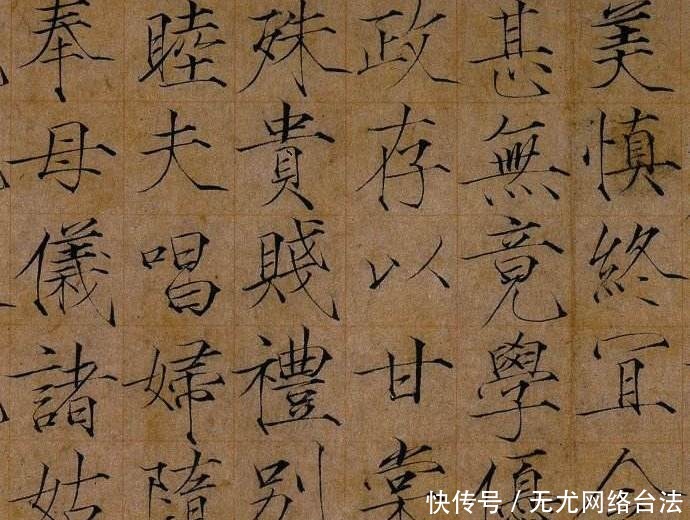 美慎終宜令
甚無竟學優
政存以甘棠
殊貴賤禮別
睦夫唱婦隨
奉母儀諸姑
快传号 / 无尤网络台法